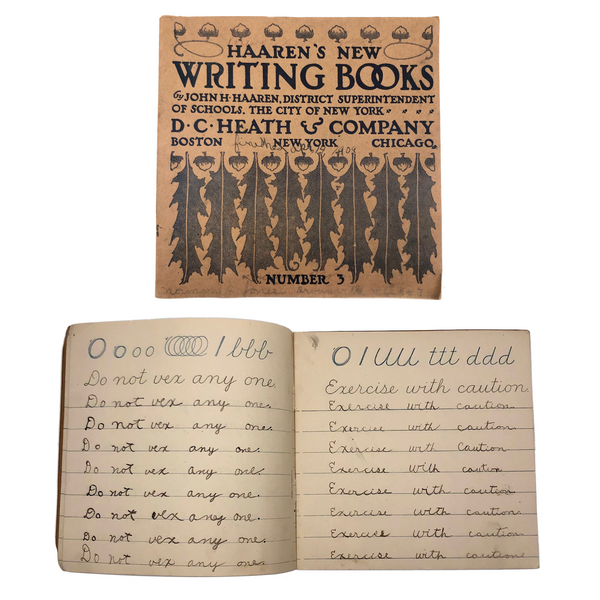 HAAREN'S NEW
WRITING BOOKS
by JOHN H·HAAREN, DISTRICT SUPERINTENDENT
OF SCHOOLS, THE CITY OF NEW YORK
D·C·HEATH & COMPANY
BOSTON NEW YORK CHICAGO
NUMBER 3
O o o o l bbb
Do not vex any one.
Do not vex any one.
Do not vex any one.
Do not vex any one.
Do not vex any one.
Do not vex any one.
Do not vex any one.
Do not vex any one.
Do not vex any one.
O l UU ttt ddd
Exercise with caution.
Exercise with caution
Exercise with caution.
Exercise with Caution.
Exercise with caution
Exercise with caution
Exercise with caution.
Exercise with caution.
Exercise with caution